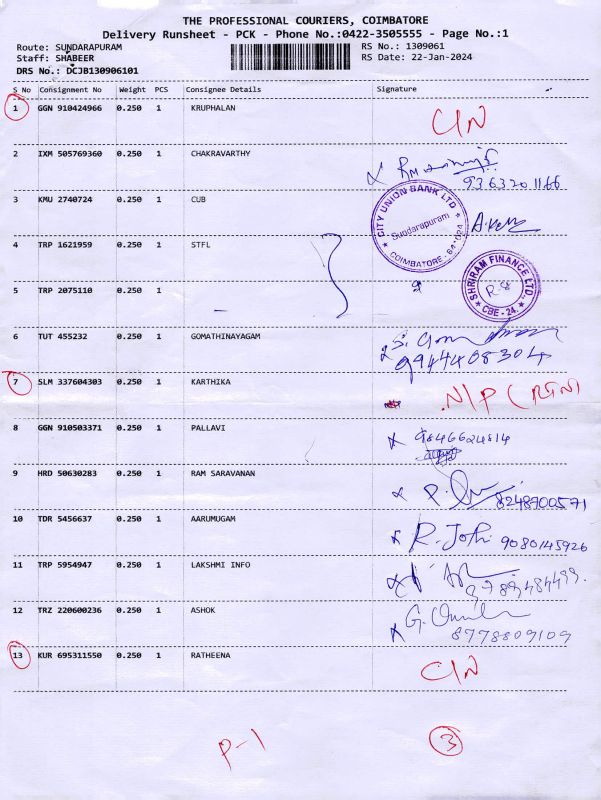 THE PROFESSIONAL COURIERS, COIMBATORE
Delivery Runsheet - PCK - Phone No.:0422-3505555 - Page No.:1
Route: SUNDARAPURAM RS No.: 1309061
Staff: SHABEER RS Date: 22-Jan-2024
DRS No.: DCJB130906101
S No Consignment No Weight PCS Consignee Details Signature
1 GGN 910424966 0.250 1 KRUPHALAN C/N
2 IXM 505769360 0.250 1 CHAKRAVARTHY
9363201166
3 KMU 2740724 0.250 1 CUB
CITY UNION BANK LTD
Sundarapuram
COIMBATORE - 641024
4 TRP 1621959 0.250 1 STFL
SHRIRAM FINANCE LTD.
CBE - 24.
5 TRP 2075110 0.250 1
6 TUT 455232 0.250 1 GOMATHINAYAGAM
9944408304
7 SLM 337604303 0.250 1 KARTHIKA N/P (RTN)
8 GGN 910503371 0.250 1 PALLAVI 9846624814
9 HRD 50630283 0.250 1 RAM SARAVANAN 8248700571
10 TDR 5456637 0.250 1 AARUMUGAM R. Joti 9080145926
11 TRP 5954947 0.250 1 LAKSHMI INFO
12 TRZ 220600236 0.250 1 ASHOK G.
8778809109
13 KUR 695311550 0.250 1 RATHEENA C/N
P-1 3